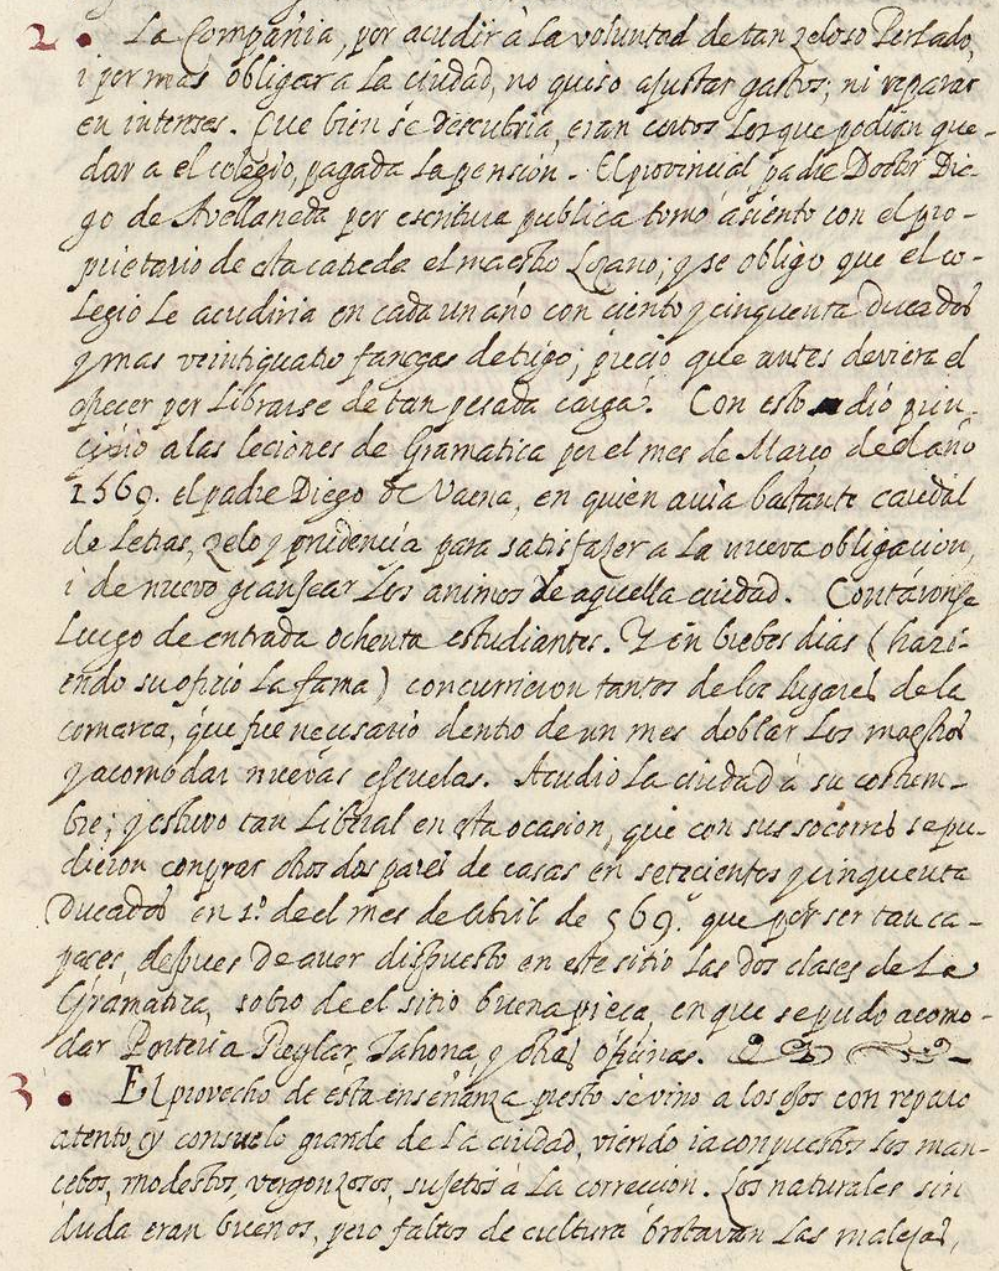 2. La Compañia, por acudir à la voluntad de tan zeloso Perlado,
i por mas obligar a la ciudad, no quiso ajustar gastos; ni reparar
en intereses. Que bien se descubria, eran cortos los que podian que-
dar a el colegio, pagada la pension. El provincial padre Doctor Die-
go de Avellaneda por escritura publica tomó asiento con el pro-
prietario de esta catreda el maestro Lozano; y se obligo que el co-
legio le acudiria en cada un año con ciento y cinquenta Ducados
y mas veintiquatro fanegas de trigo; precio que antes deviera el
ofrecer por librarse de tan pesada carga. Con esto dió prin-
cipio a las leciones de Gramatica por el mes de Março de el año
1569. el padre Diego de Vaena, en quien avia bastante caudal
de letras, zelo y prudencia para satisfazer a la nueva obligacion,
i de nuevo granjear los animos de aquella ciudad. Contáronse
luego de entrada ochenta estudiantes. Y en brebes dias (hazi-
endo su oficio la fama) concurrieron tantos de los lugares de la
comarca, que fue necesario dentro de un mes doblar los maestros
y acomodar nuevas escuelas. Acudio la ciudad à su costum-
bre; y estuvo tan liberal en esta ocasion, que con sus socorros se pu-
dieron comprar otros dos pares de casas en setecientos y cinquenta
Ducados en 1º. de el mes de Abril de 569. que por ser tan ca-
paces, despues de aver dispuesto en este sitio las dos clases de la
Gramatica, sobró de el sitio buena pieça, en que se pudo acomo-
dar Porteria Reglar, Tahona, y otras oficinas.
3. El provecho de esta enseñanza presto se vino a los ojos con reparo
atento, y consuelo grande de la ciudad, viendo ia conpuestos los man-
cebos, modestos, vergonzosos, sujetos à la correccion. Los naturales sin
duda eran buenos, pero faltos de cultura brotavan las malezas,